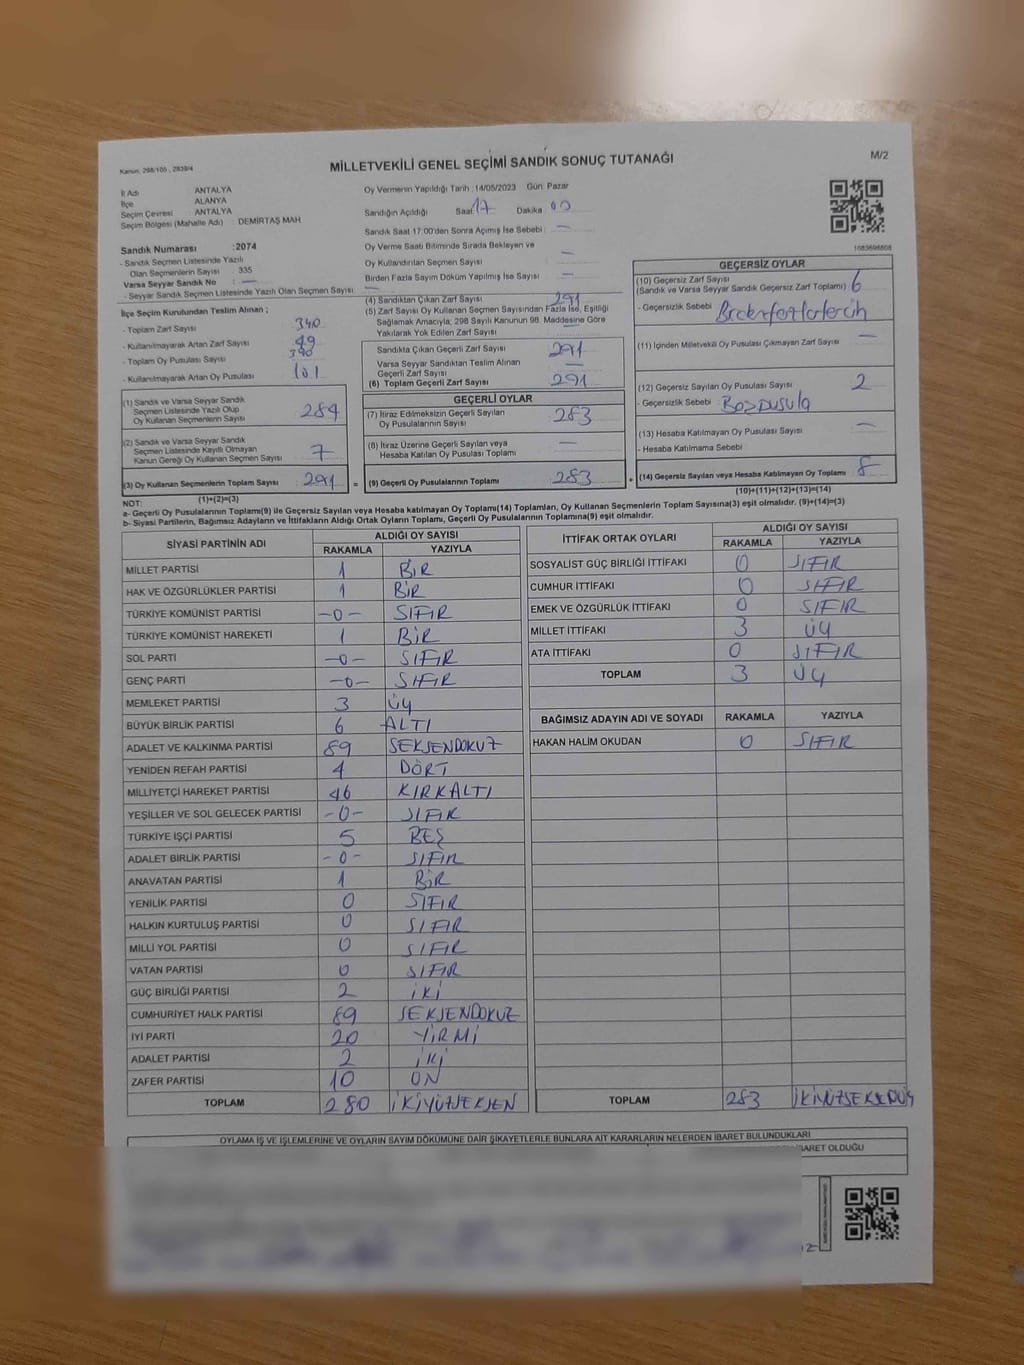 Kanun: 298/105 , 2839/4
MİLLETVEKİLİ GENEL SEÇİMİ SANDIK SONUÇ TUTANAĞI
M/2
İl Adı ANTALYA
İlçe ALANYA
Seçim Çevresi ANTALYA
Seçim Bölgesi (Mahalle Adı) : DEMİRTAŞ MAH.
Sandık Numarası :2074
- Sandık Seçmen Listesinde Yazılı
Olan Seçmenlerin Sayısı 335
Varsa Seyyar Sandık No : —
- Seyyar Sandık Seçmen Listesinde Yazılı Olan Seçmen Sayısı : —
İlçe Seçim Kurulundan Teslim Alınan ;
- Toplam Zarf Sayısı 340
- Kullanılmayarak Artan Zarf Sayısı 49
- Toplam Oy Pusulası Sayısı 390
- Kullanılmayarak Artan Oy Pusulası 101
(1) Sandık ve Varsa Seyyar Sandık
Seçmen Listesinde Yazılı Olup
Oy Kullanan Seçmenlerin Sayısı 284
(2) Sandık ve Varsa Seyyar Sandık
Seçmen Listesinde Kayıtlı Olmayan
Kanun Gereği Oy Kullanan Seçmen Sayısı 7
(3) Oy Kullanan Seçmenlerin Toplam Sayısı 291 =
(1)+(2)=(3)
Oy Vermenin Yapıldığı Tarih : 14/05/2023 Gün: Pazar
Sandığın Açıldığı Saat 17 Dakika 00
Sandık Saat 17:00'den Sonra Açılmış İse Sebebi : —
Oy Verme Saati Bitiminde Sırada Bekleyen ve
Oy Kullandırılan Seçmen Sayısı : —
Birden Fazla Sayım Döküm Yapılmış İse Sayısı : —
(4) Sandıktan Çıkan Zarf Sayısı 291
(5) Zarf Sayısı Oy Kullanan Seçmen Sayısından Fazla İse, Eşitliği
Sağlamak Amacıyla, 298 Sayılı Kanunun 98. Maddesine Göre
Yakılarak Yok Edilen Zarf Sayısı : —
Sandıkta Çıkan Geçerli Zarf Sayısı 291
Varsa Seyyar Sandıktan Teslim Alınan
Geçerli Zarf Sayısı —
(6) Toplam Geçerli Zarf Sayısı 291
GEÇERLİ OYLAR
(7) İtiraz Edilmeksizin Geçerli Sayılan
Oy Pusulalarının Sayısı 283
(8) İtiraz Üzerine Geçerli Sayılan veya
Hesaba Katılan Oy Pusulası Toplamı —
(9) Geçerli Oy Pusulalarının Toplamı 283 +
1683698808
GEÇERSİZ OYLAR
(10) Geçersiz Zarf Sayısı
(Sandık ve Varsa Seyyar Sandık Geçersiz Zarf Toplamı) 6
- Geçersizlik Sebebi
(11) İçinden Milletvekili Oy Pusulası Çıkmayan Zarf Sayısı —
(12) Geçersiz Sayılan Oy Pusulası Sayısı 2
- Geçersizlik Sebebi Boşpusula
(13) Hesaba Katılmayan Oy Pusulası Sayısı —
- Hesaba Katılmama Sebebi
(14) Geçersiz Sayılan veya Hesaba Katılmayan Oy Toplamı 8
(10)+(11)+(12)+(13)=(14)
NOT:
a- Geçerli Oy Pusulalarının Toplamı(9) ile Geçersiz Sayılan veya Hesaba katılmayan Oy Toplamı(14) Toplamları, Oy Kullanan Seçmenlerin Toplam Sayısına(3) eşit olmalıdır. (9)+(14)=(3)
b- Siyasi Partilerin, Bağımsız Adayların ve İttifakların Aldığı Ortak Oyların Toplamı, Geçerli Oy Pusulalarının Toplamına(9) eşit olmalıdır.
SİYASİ PARTİNİN ADI ALDIĞI OY SAYISI
RAKAMLA YAZIYLA
MİLLET PARTİSİ 1 BİR
HAK VE ÖZGÜRLÜKLER PARTİSİ 1 BİR
TÜRKİYE KOMÜNİST PARTİSİ -0- SIFIR
TÜRKİYE KOMÜNİST HAREKETİ 1 BİR
SOL PARTİ -0- SIFIR
GENÇ PARTİ -0- SIFIR
MEMLEKET PARTİSİ 3 ÜÇ
BÜYÜK BİRLİK PARTİSİ 6 ALTI
ADALET VE KALKINMA PARTİSİ 89 SEKSENDOKUZ
YENİDEN REFAH PARTİSİ 4 DÖRT
MİLLİYETÇİ HAREKET PARTİSİ 46 KIRKALTI
YEŞİLLER VE SOL GELECEK PARTİSİ -0- SIFIR
TÜRKİYE İŞÇİ PARTİSİ 5 BEŞ
ADALET BİRLİK PARTİSİ -0- SIFIR
ANAVATAN PARTİSİ 1 BİR
YENİLİK PARTİSİ 0 SIFIR
HALKIN KURTULUŞ PARTİSİ 0 SIFIR
MİLLİ YOL PARTİSİ 0 SIFIR
VATAN PARTİSİ 0 SIFIR
GÜÇ BİRLİĞİ PARTİSİ 2 İKİ
CUMHURİYET HALK PARTİSİ 89 SEKSENDOKUZ
İYİ PARTİ 20 YİRMİ
ADALET PARTİSİ 2 İKİ
ZAFER PARTİSİ 10 ON
TOPLAM 280 İKİYÜZSEKSEN
İTTİFAK ORTAK OYLARI ALDIĞI OY SAYISI
RAKAMLA YAZIYLA
SOSYALİST GÜÇ BİRLİĞİ İTTİFAKI 0 SIFIR
CUMHUR İTTİFAKI 0 SIFIR
EMEK VE ÖZGÜRLÜK İTTİFAKI 0 SIFIR
MİLLET İTTİFAKI 3 ÜÇ
ATA İTTİFAKI 0 SIFIR
TOPLAM 3 ÜÇ
BAĞIMSIZ ADAYIN ADI VE SOYADI RAKAMLA YAZIYLA
HAKAN HALİM OKUDAN 0 SIFIR
TOPLAM 283
OYLAMA İŞ VE İŞLEMLERİNE VE OYLARIN SAYIM DÖKÜMÜNE DAİR ŞİKAYETLERLE BUNLARA AİT KARARLARIN NELERDEN İBARET BULUNDUKLARI
İBARET OLDUĞU